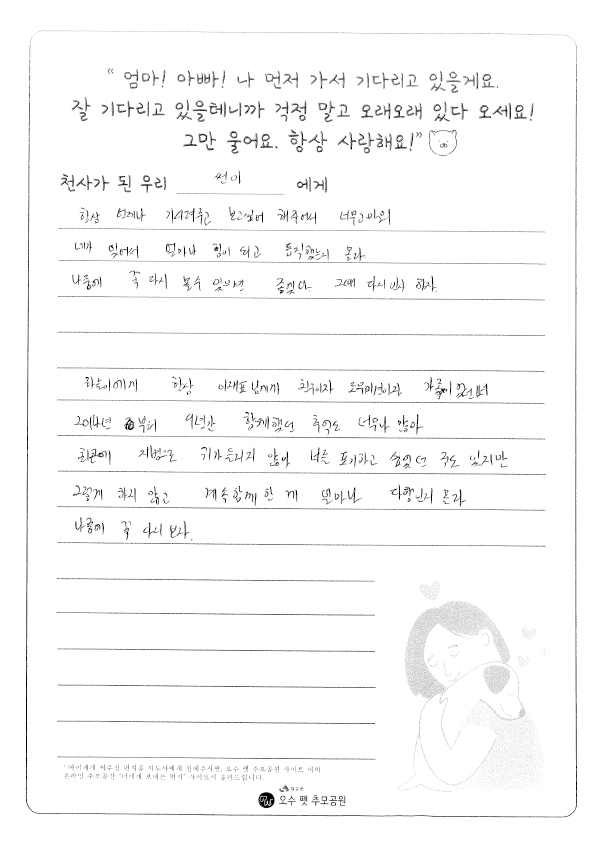 “ 엄마! 아빠! 나 먼저 가서 기다리고 있을게요.
잘 기다리고 있을테니까 걱정 말고 오래오래 있다 오세요!
그만 울어요. 항상 사랑해요!”
천사가 된 우리 썬이 에게
항상 언제나 기다려주고 보고싶어 해주어서 너무고마워
네가 있어서 얼마나 힘이 되고 든직했는지 몰라
나중에 꼭 다시 볼수 있으면 좋겠다. 그때 다시만나 하자.
하늘이에게 항상 이재표님에게 친구이자 도우미견이자 가족이 었던
2014년 부터 9년간 함께했던 추억도 너무나 많아
최근에 지병으로 귀가 들리지 않아 너를 포기하고 싶었던 적도 있지만
그렇게 하지 않고 계속 함께 한 게 얼마나 다행인지 몰라
나중에 꼭 다시 보자.
* 아이에게 써주신 편지를 지도사에게 전해주시면, 오수 펫 추모공원 사이트 내의
온라인 추모공간 "너에게 보내는 편지" 사이트에 올려드립니다.
임실군
오수 펫 추모공원